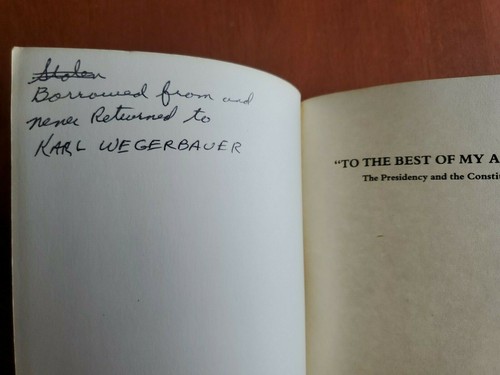 Stolen
Borrowed from and
never Returned to
KARL WEGERBAUER
"TO THE BEST OF MY A
The Presidency and the Constitu